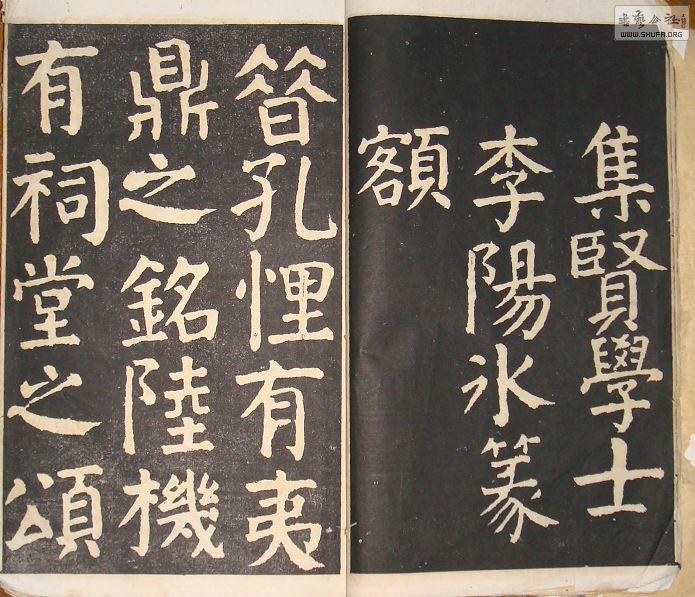 集賢學士
李陽冰篆
額
昔孔悝有夷
鼎之銘陸機
有祠堂之頌
书艺公社
WWW.SHUFA.ORG